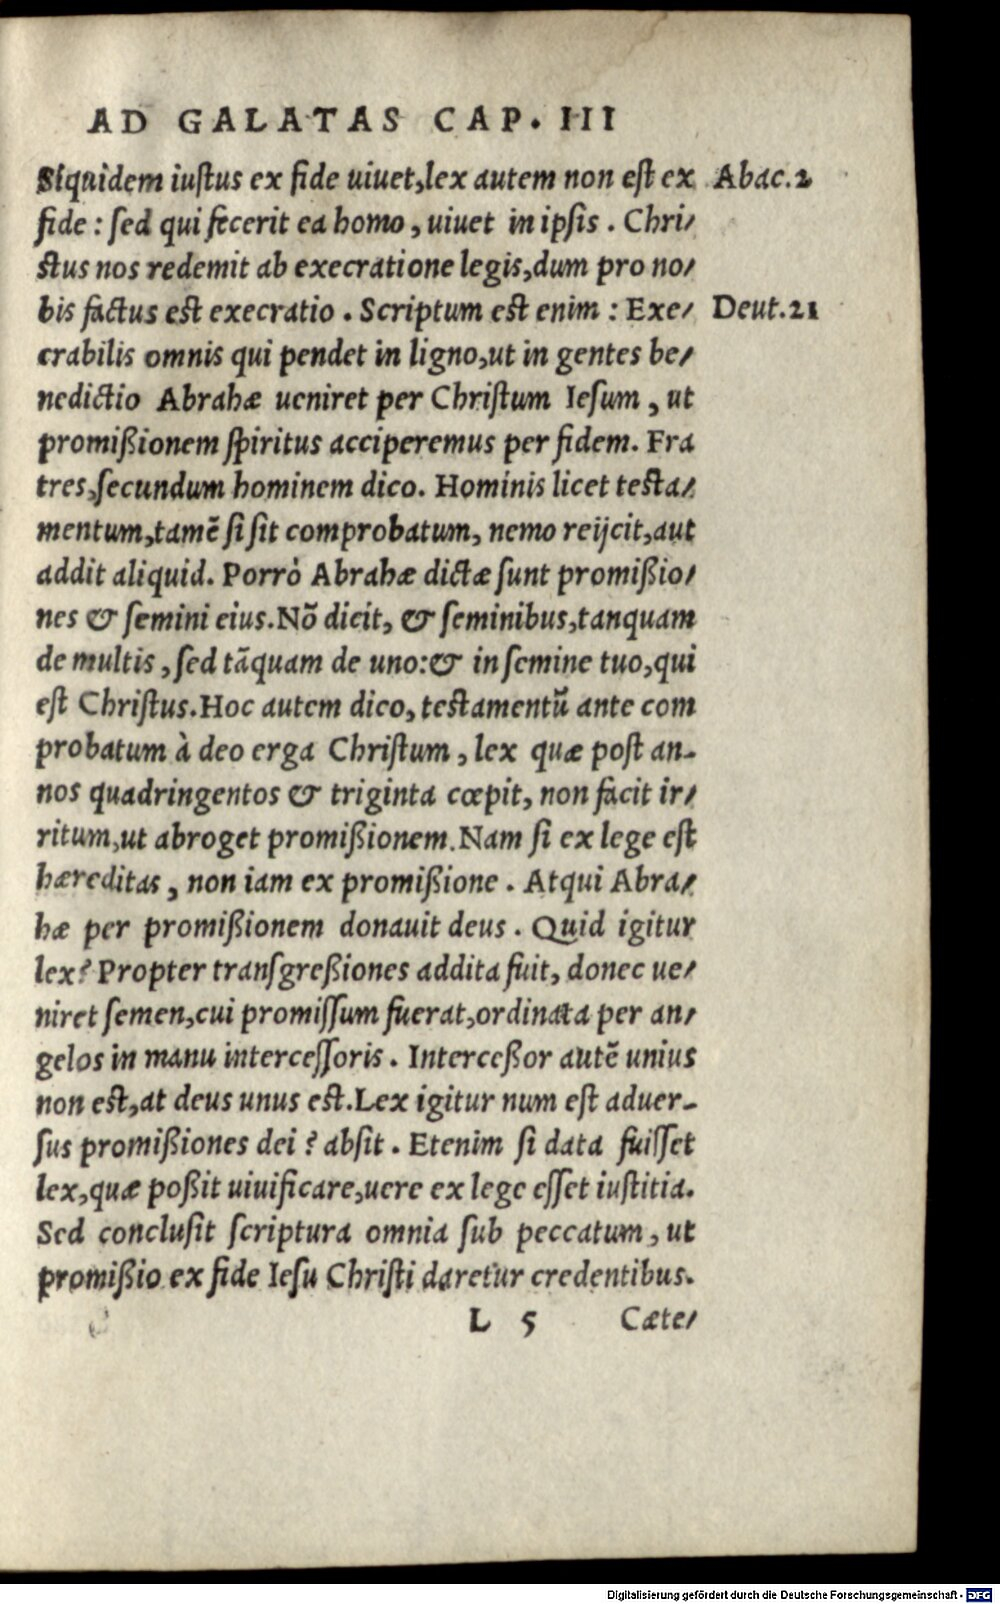 AD GALATAS CAP. III
Siquidem iuſtus ex fide uiuet,lex autem non eſt ex Abac.2
fide : ſed qui fecerit ea homo , uiuet in ipſis . Chri/
ſtus nos redemit ab execratione legis,dum pro no/
bis factus eſt execratio . Scriptum eſt enim : Exe/ Deut.21
crabilis omnis qui pendet in ligno,ut in gentes be/
nedictio Abrahæ ueniret per Chriſtum Ieſum , ut
promißionem ſpiritus acciperemus per fidem. Fra
tres,ſecundum hominem dico. Hominis licet teſta/
mentum,tamẽ ſi ſit comprobatum, nemo reijcit,aut
addit aliquid. Porrò Abrahæ dictæ ſunt promißio/
nes & ſemini eius.Nõ dicit, & ſeminibus,tanquam
de multis , ſed tãquam de uno:& in ſemine tuo,qui
eſt Chriſtus.Hoc autem dico, teſtamentũ ante com
probatum à deo erga Chriſtum , lex quæ poſt an-
nos quadringentos & triginta cœpit, non facit ir/
ritum,ut abroget promißionem.Nam ſi ex lege eſt
hæreditas , non iam ex promißione . Atqui Abra/
hæ per promißionem donauit deus . Quid igitur
lex? Propter tranſgreßiones addita fuit, donec ue/
niret ſemen,cui promiſſum fuerat,ordinata per an/
gelos in manu interceſſoris . Interceßor autẽ unius
non eſt,at deus unus eſt.Lex igitur num eſt aduer-
ſus promißiones dei ? abſit . Etenim ſi data fuiſſet
lex,quæ poßit uiuificare,uere ex lege eſſet iuſtitia.
Sed concluſit ſcriptura omnia ſub peccatum , ut
promißio ex fide Ieſu Chriſti daretur credentibus.
L 5 Cæte/
Digitalisierung gefördert durch die Deutsche Forschungsgemeinschaft - DFG